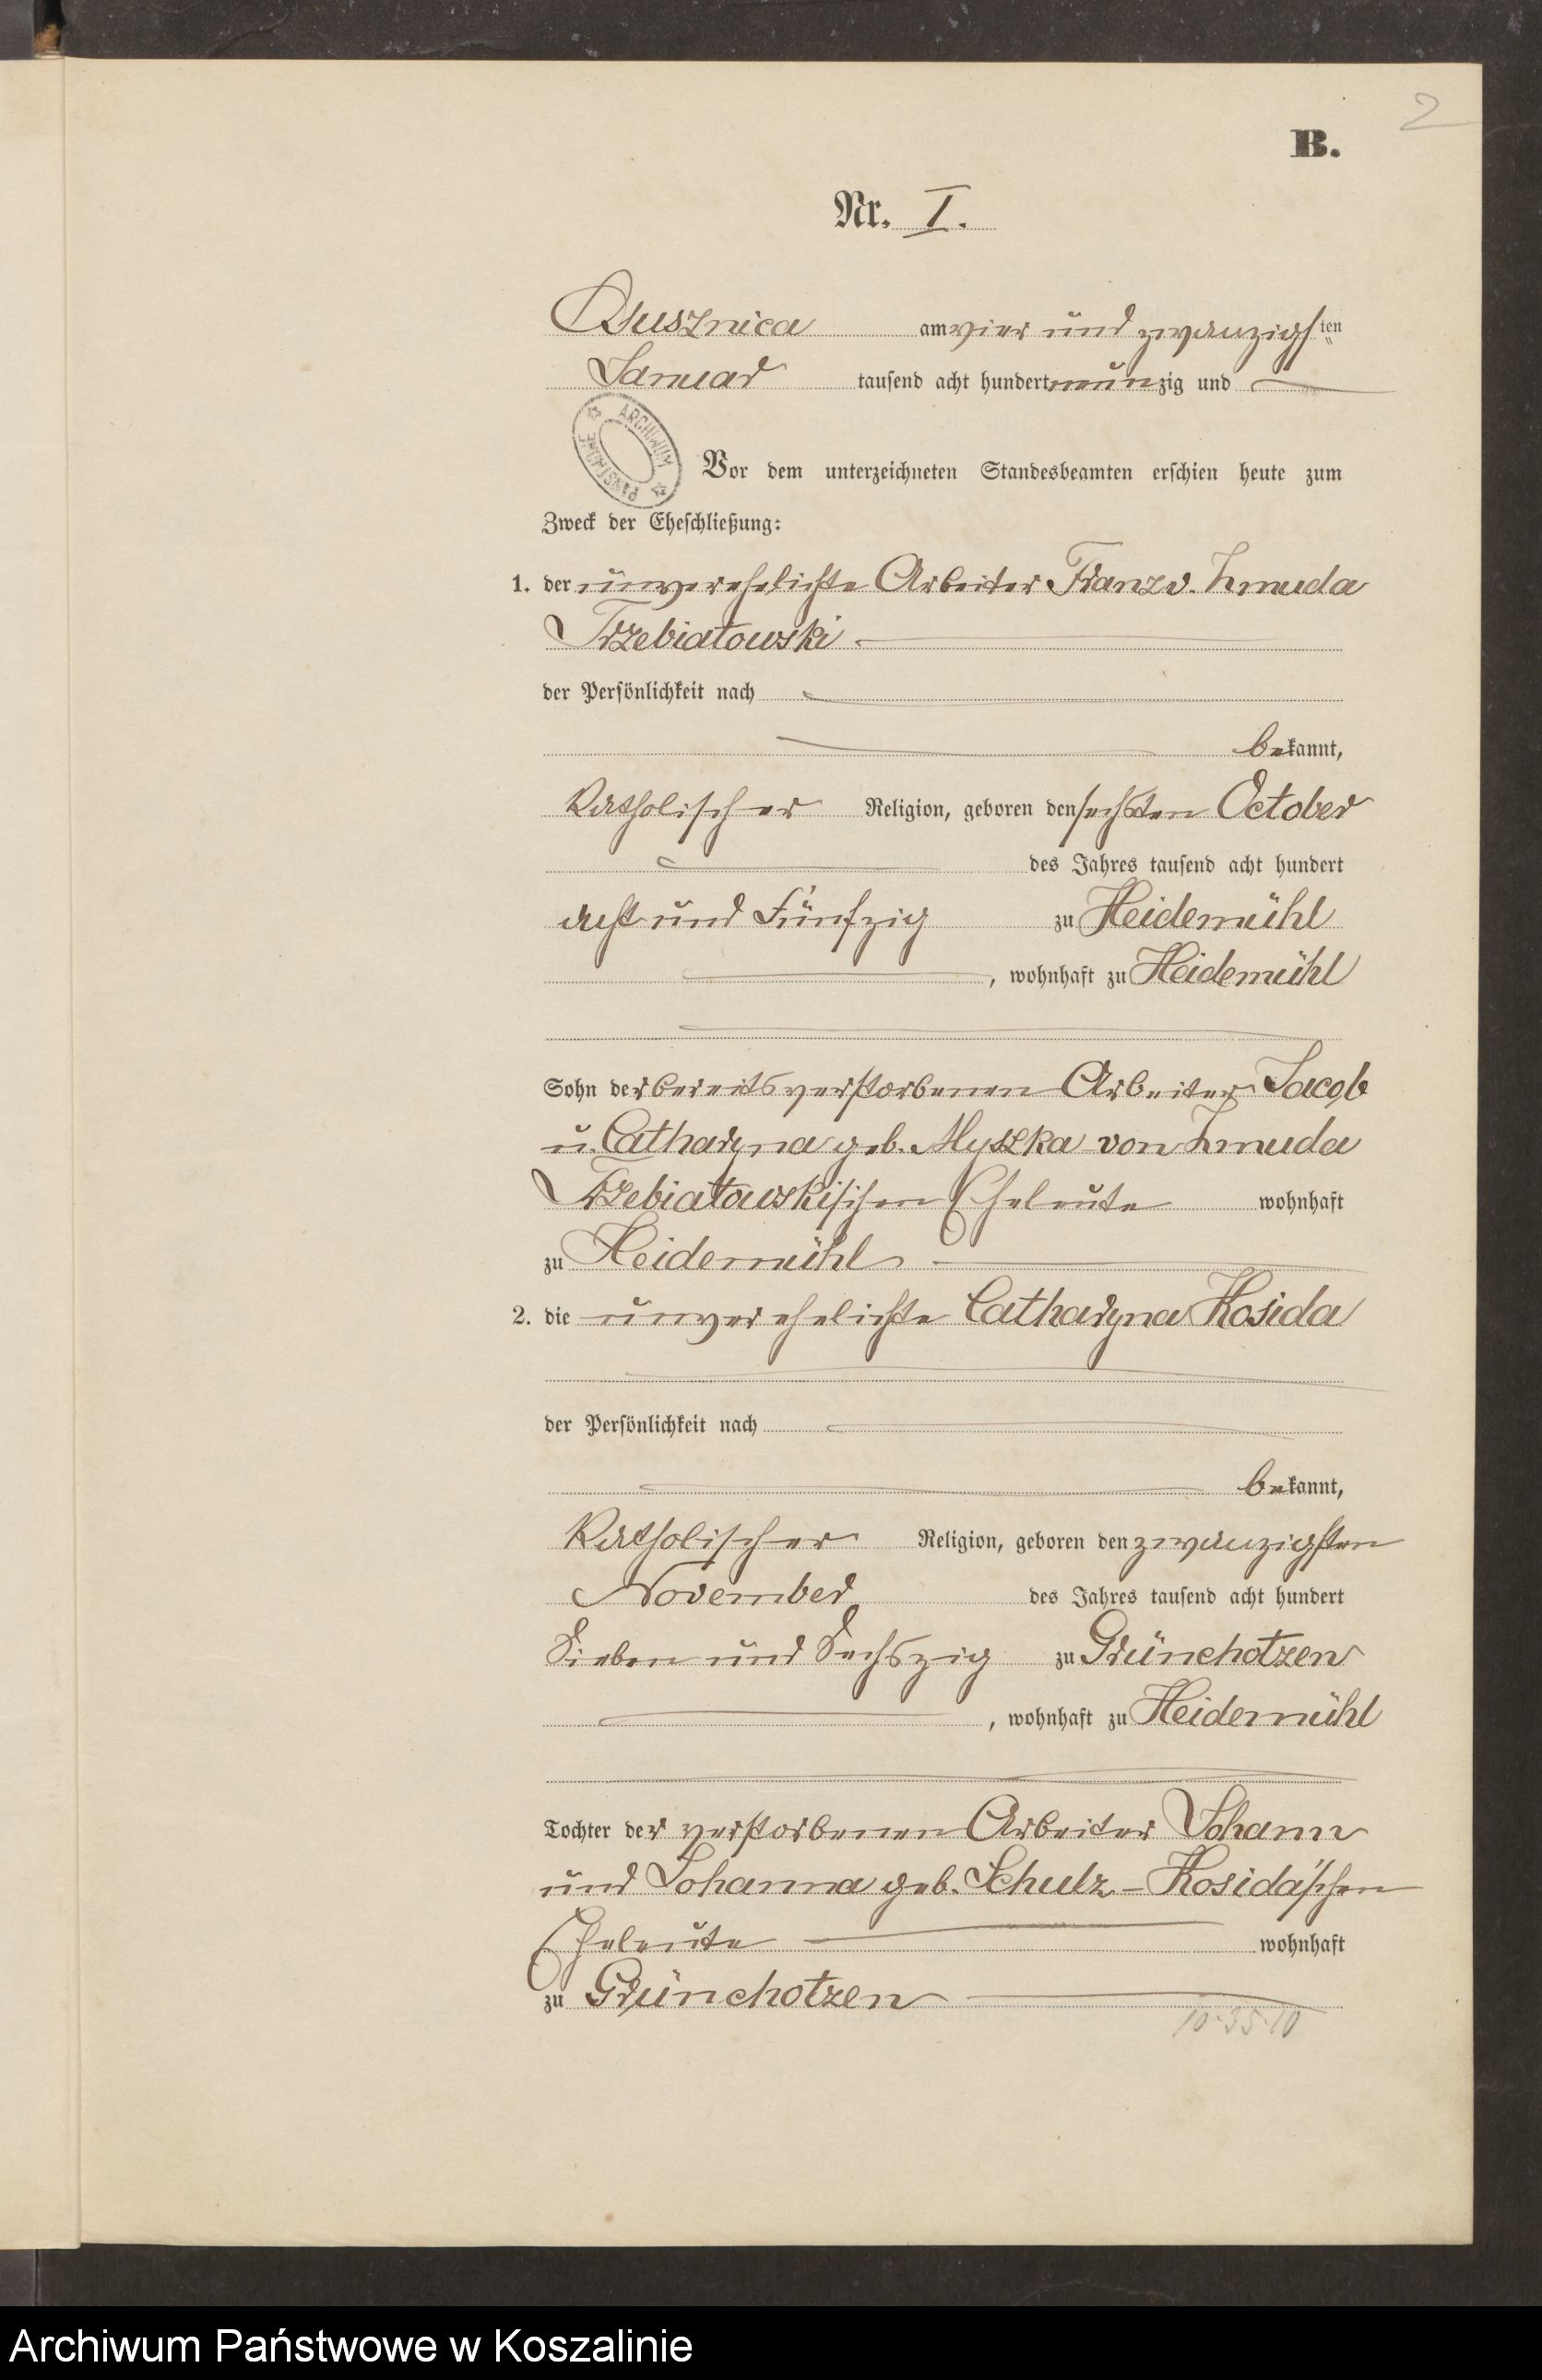 2
B.
Nr. I.
am vier und zwanzigsten
Januar tausend acht hundert neunzig und
ARCHIWUM PAŃSTWOWE
Vor dem unterzeichneten Standesbeamten erschien heute zum
Zweck der Eheschließung:
1. der unverehelichte Arbeiter Franz v. Zmuda
Trzebiatowski
der Persönlichkeit nach
bekannt,
Katholischer Religion, geboren den sechsten October
des Jahres tausend acht hundert
acht und Fünfzig zu Heidemühl
, wohnhaft zu Heidemühl
Sohn der bereits verstorbenen Arbeiter Jacob
u. Catharyna geb. Myszka von Zmuda
Trzebiatowskischen Eheleute wohnhaft
zu Heidemühl
2. die unverehelichte Catharyna Kosida
der Persönlichkeit nach
bekannt,
Katholischer Religion, geboren den zwanzigsten
November des Jahres tausend acht hundert
Sieben und Sechszig zu Grünchotzen
, wohnhaft zu Heidemühl
Tochter der verstorbenen Arbeiter Johann
und Johanna geb. Schulz - Kosida'schen
Eheleute wohnhaft
zu Grünchotzen
10·35·10
Archiwum Państwowe w Koszalinie